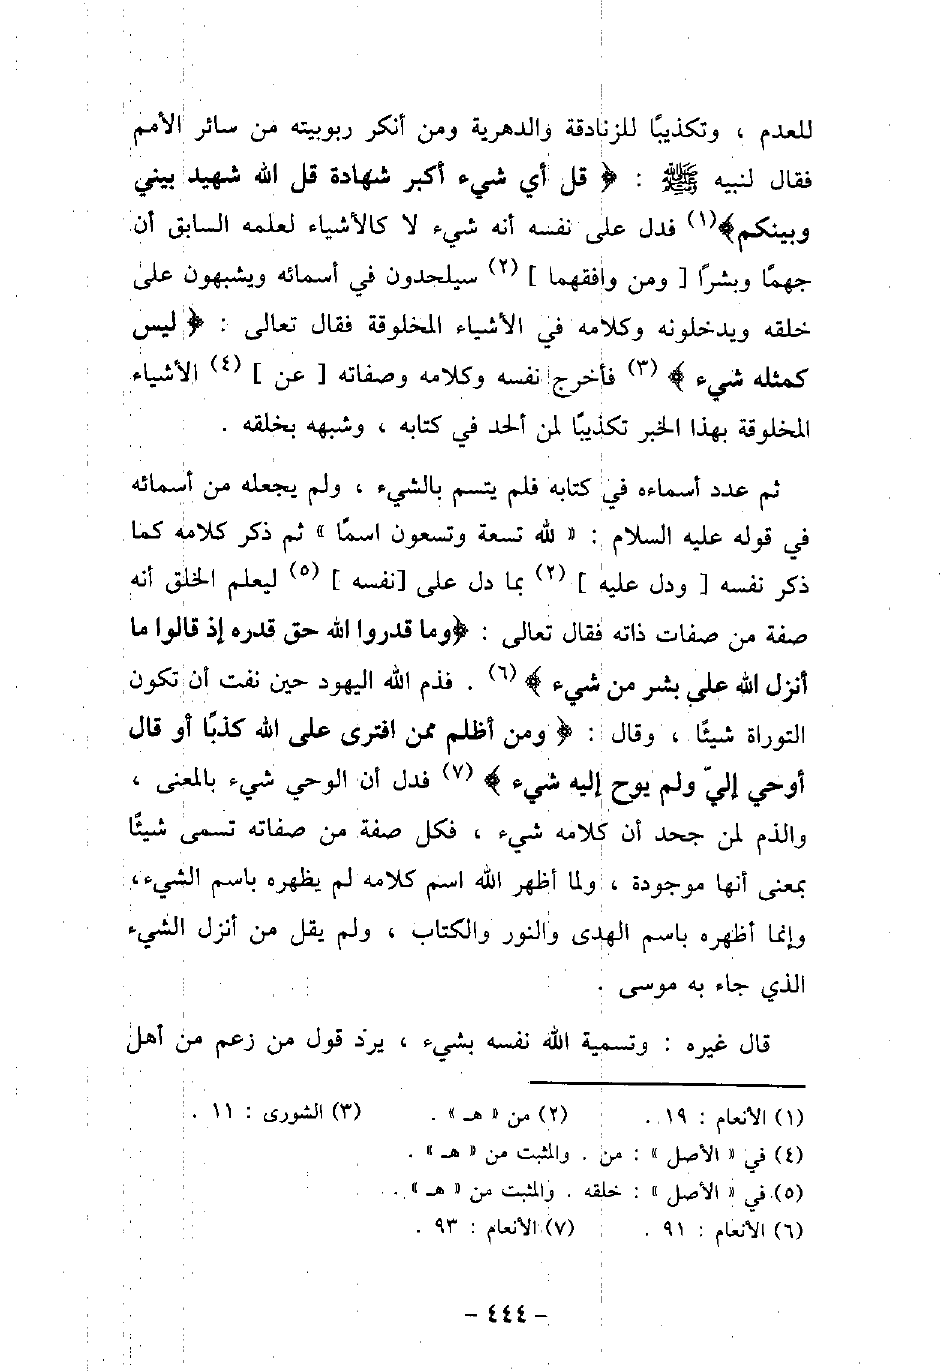 للعدم ، وتكذيبًا للزنادقة والدهرية ومن أنكر ربوبيته من سائر الأمم
فقال لنبيه ﷺ : ﴿ قل أي شيء أكبر شهادة قل الله شهيد بيني
وبينكم﴾(١) فدل على نفسه أنه شيء لا كالأشياء لعلمه السابق أن
جهمًا وبشرًا [ ومن وافقهما ] (٢) سيلحدون في أسمائه ويشبهون على
خلقه ويدخلونه وكلامه في الأشياء المخلوقة فقال تعالى : ﴿ ليس
كمثله شيء ﴾ (٣) فأخرج نفسه وكلامه وصفاته [ عن ] (٤) الأشياء
المخلوقة بهذا الخبر تكذيبًا لمن ألحد في كتابه ، وشبهه بخلقه .
ثم عدد أسماءه في كتابه فلم يتسم بالشيء ، ولم يجعله من أسمائه
في قوله عليه السلام : « لله تسعة وتسعون اسمًا » ثم ذكر كلامه كما
ذكر نفسه [ ودل عليه ] (٢) بما دل على [نفسه ] (٥) ليعلم الخلق أنه
صفة من صفات ذاته فقال تعالى : ﴿وما قدروا الله حق قدره إذ قالوا ما
أنزل الله على بشر من شيء ﴾ (٦) . فذم الله اليهود حين نفت أن تكون
التوراة شيئًا ، وقال : ﴿ ومن أظلم ممن افترى على الله كذبًا أو قال
أوحي إليّ ولم يوح إليه شيء ﴾ (٧) فدل أن الوحي شيء بالمعنى ،
والذم لمن جحد أن كلامه شيء ، فكل صفة من صفاته تسمى شيئًا
بمعنى أنها موجودة ، ولما أظهر الله اسم كلامه لم يظهره باسم الشيء،
وإنما أظهره باسم الهدى والنور والكتاب ، ولم يقل من أنزل الشيء
الذي جاء به موسى .
قال غيره : وتسمية الله نفسه بشيء ، يردّ قول من زعم من أهل
(١) الأنعام : ١٩ . (٢) من « هـ » . (٣) الشورى : ١١ .
(٤) في « الأصل » : من . والمثبت من « هـ » .
(٥) في « الأصل » : خلقه . والمثبت من « هـ » .
(٦) الأنعام : ٩١ . (٧) الأنعام : ٩٣ .
- ٤٤٤ -